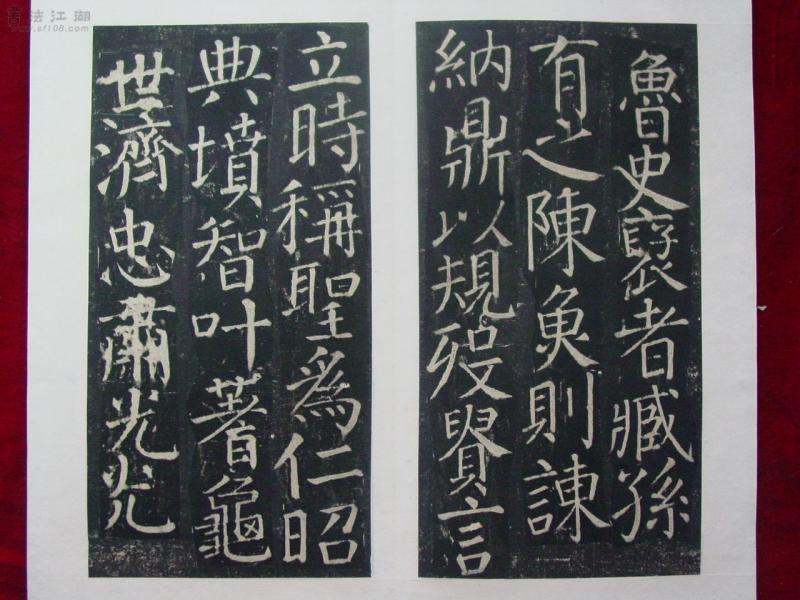 魯史褒者臧孫
有之陳魚則諫
納鼎以規歿貴言
立時稱聖爲仁昭
典墳智叶著龜
世濟忠肅光光
書法江湖
www.sf108.com